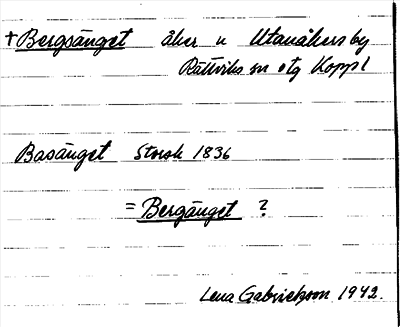 †Bergsänget åker u Utanåkers by
Rättviks sn o tg Koppl
Basänget Storsk 1836
= Bergänget ?
Lena Gabrielsson 1942.